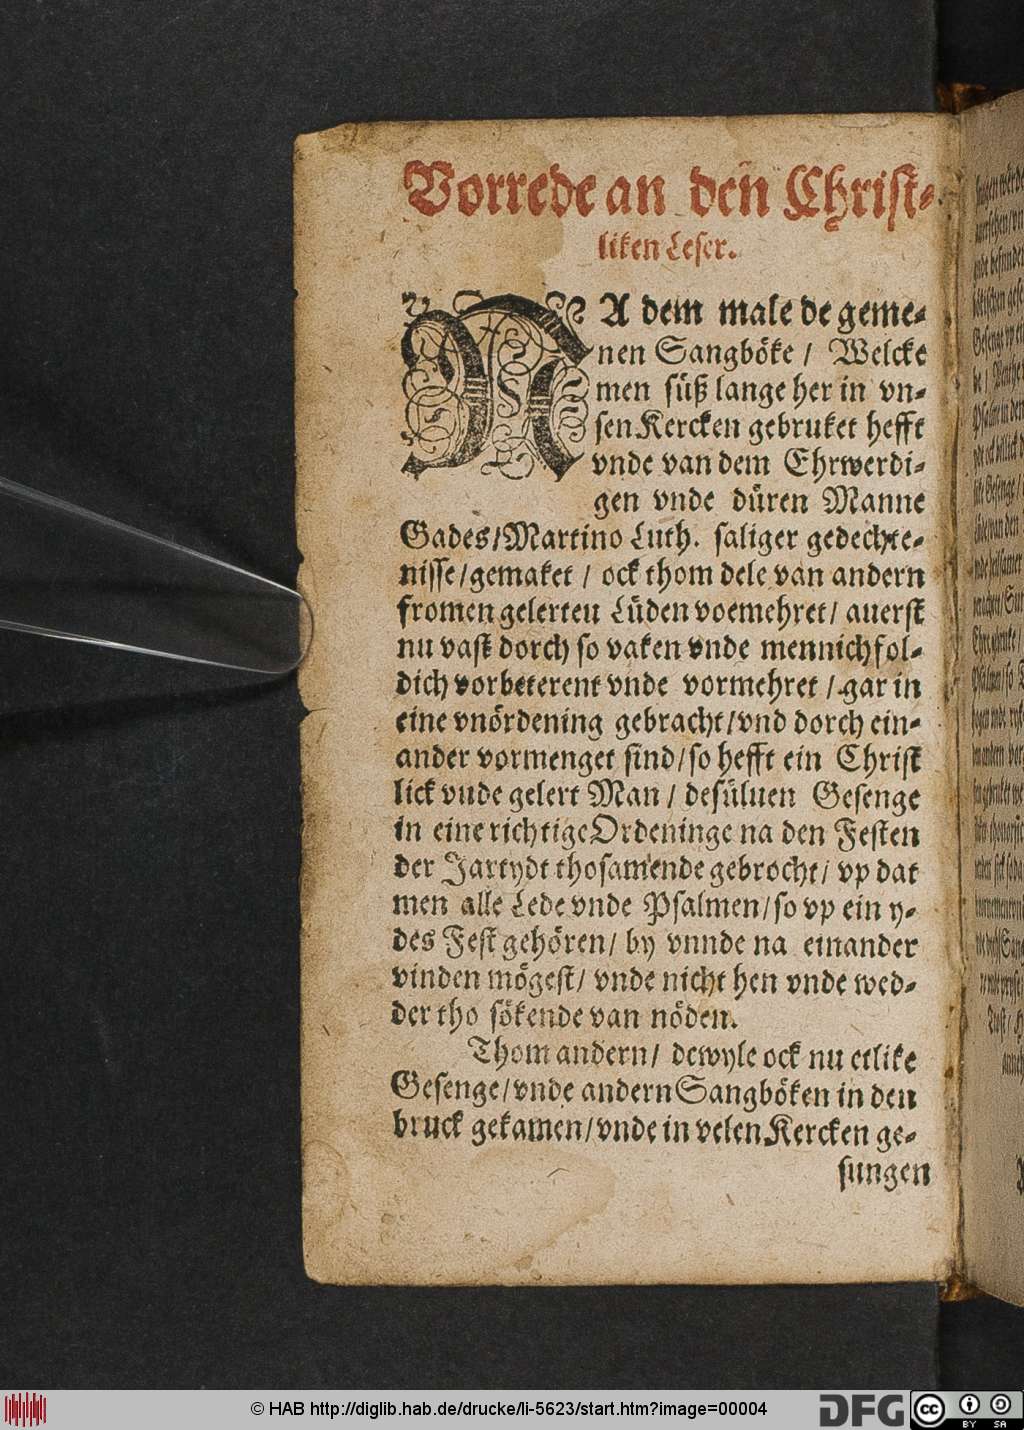 Vorrede an den Christ-
liken Leser.
NA dem male de geme-
nen Sangböke / Welcke
men süß lange her in vn-
sen Kercken gebruket hefft
vnde van dem Ehrwerdi-
gen vnde düren Manne
Gades/Martino Luth. saliger gedechte-
nisse/gemaket / ock thom dele van andern
fromen gelerteu Lüden voemehret/ auerst
nu vast dorch so vaken vnde mennichfol-
dich vorbeterent vnde vormehret / gar in
eine vnördening gebracht/vnd dorch ein-
ander vormenget sind/so hefft ein Christ
lick vnde gelert Man / desüluen Gesenge
in eine richtige Ordeninge na den Festen
der Jartydt thosamende gebrocht/ vp dat
men alle Lede vnde Psalmen/so vp ein y-
des Fest gehören/ by vnnde na einander
vinden mögest/ vnde nicht hen vnde wed-
der tho sökende van nöden.
Thom andern/ dewyle ock nu etlike
Gesenge/vnde andern Sangböken in den
bruck gekamen/vnde in velen Kercken ge-
sungen
© HAB http://diglib.hab.de/drucke/li-5623/start.htm?image=00004
DFG
cc
BY SA